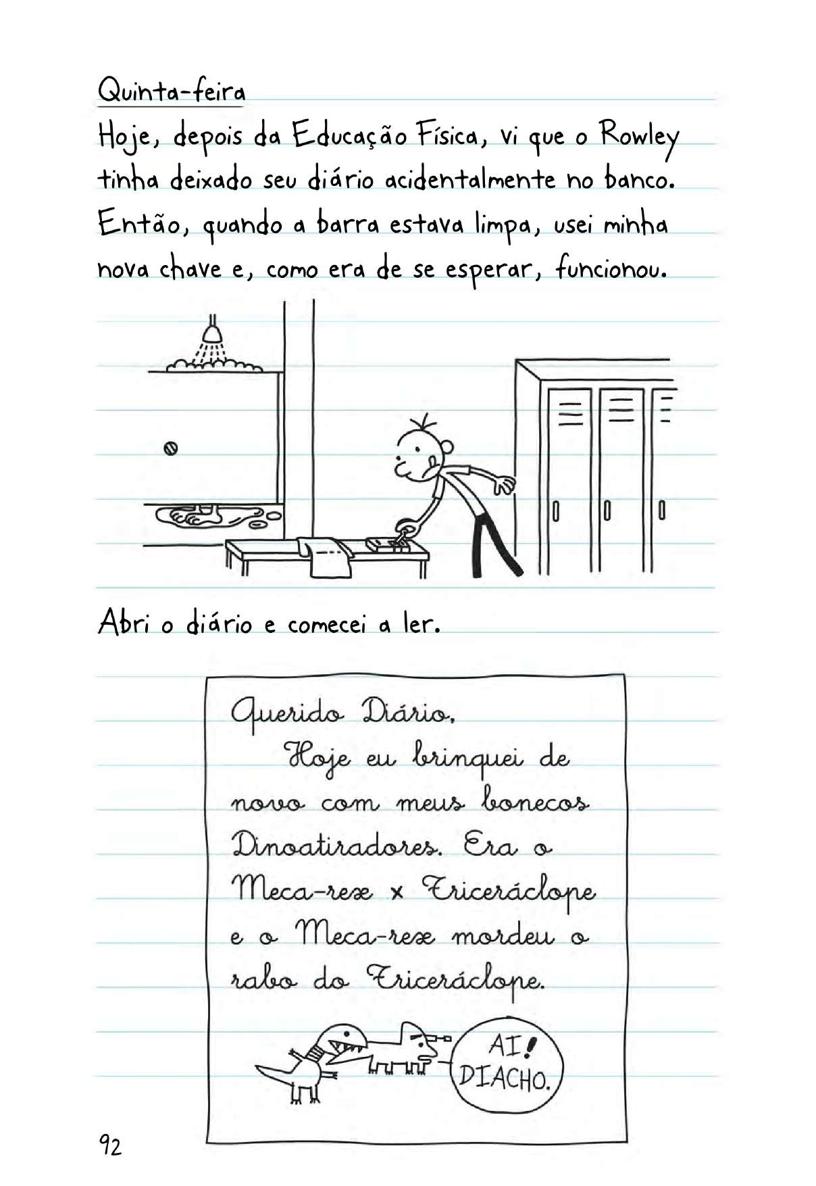 Quinta-feira
Hoje, depois da Educação Física, vi que o Rowley
tinha deixado seu diário acidentalmente no banco.
Então, quando a barra estava limpa, usei minha
nova chave e, como era de se esperar, funcionou.
Abri o diário e comecei a ler.
Querido Diário,
Hoje eu brinquei de
novo com meus bonecos
Dinoatiradores. Era o
Meca-rex x Triceráclope
e o Meca-rex mordeu o
rabo do Triceráclope.
AI!
DIACHO.
92